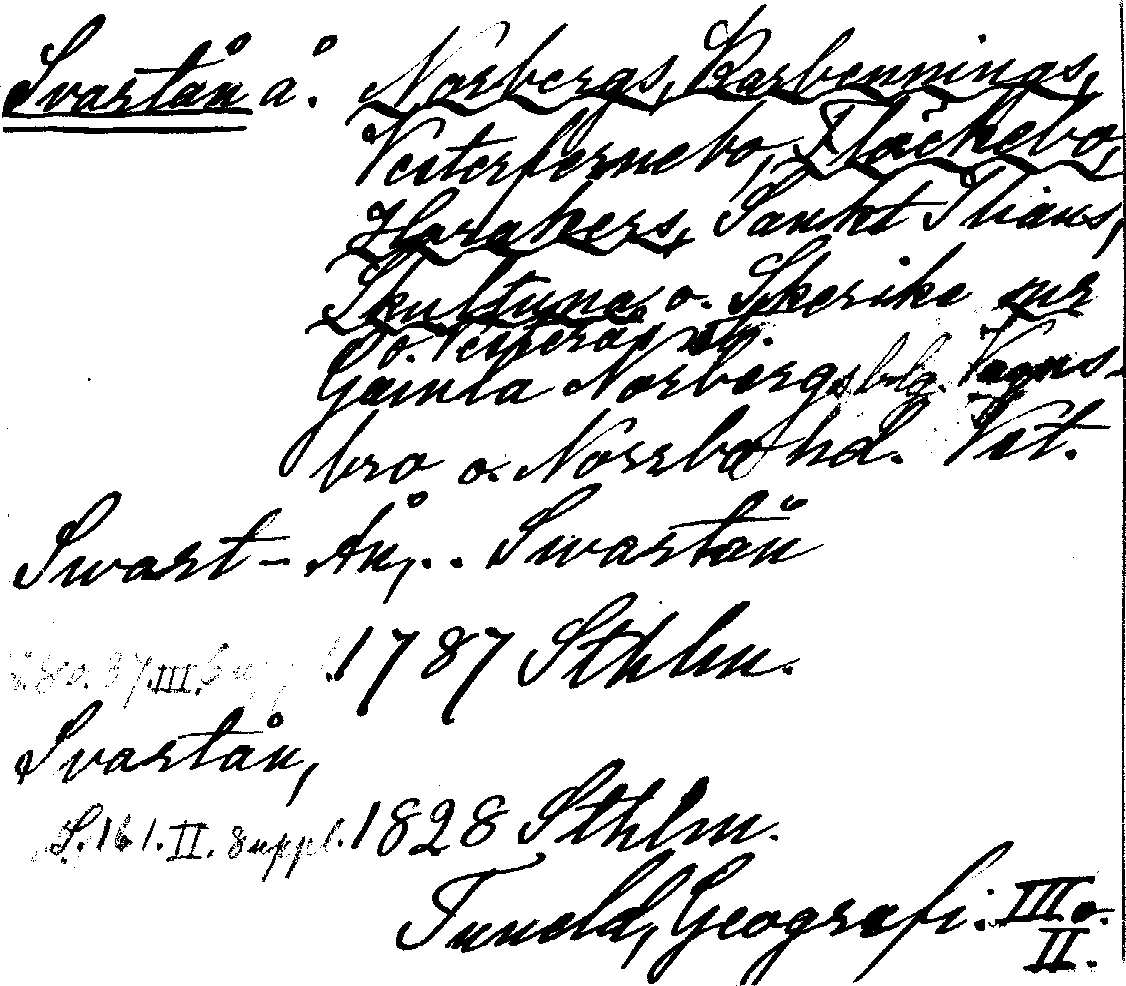 Svartån å. Norbergs, Karbennings,
Vesterfernebo, Fläckebo,
Harakers, Sankt Ilians,
Skultuna, o. Skerike snr
o. Vesterås st.
Gamla Norbergs blg. Vagns-
bro o. Norrbo hd. Vest.
Swart-Ån, .. Swartån
III. Suppl. 1787 Sthlm.
Svartån,
S. 161. II. Suppl. 1828 Sthlm.
Tuneld, Geografi. III o.
II.